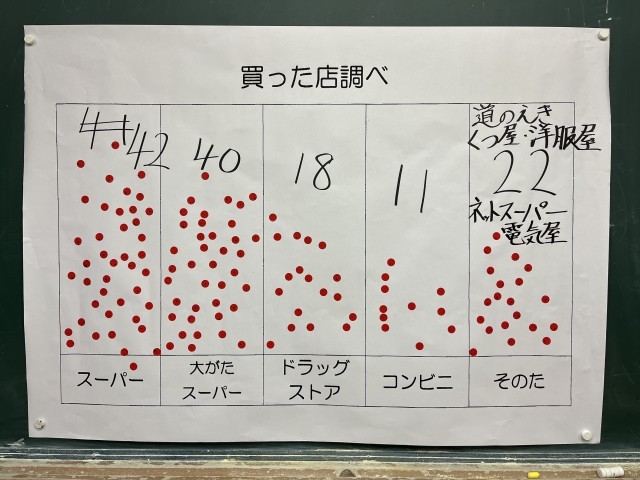 買った店調べ
42
40
18
11
道のえき
くつ屋・洋服屋
22
ネットスーパー
電気屋
スーパー
大がた
スーパー
ドラッグ
ストア
コンビニ
そのた